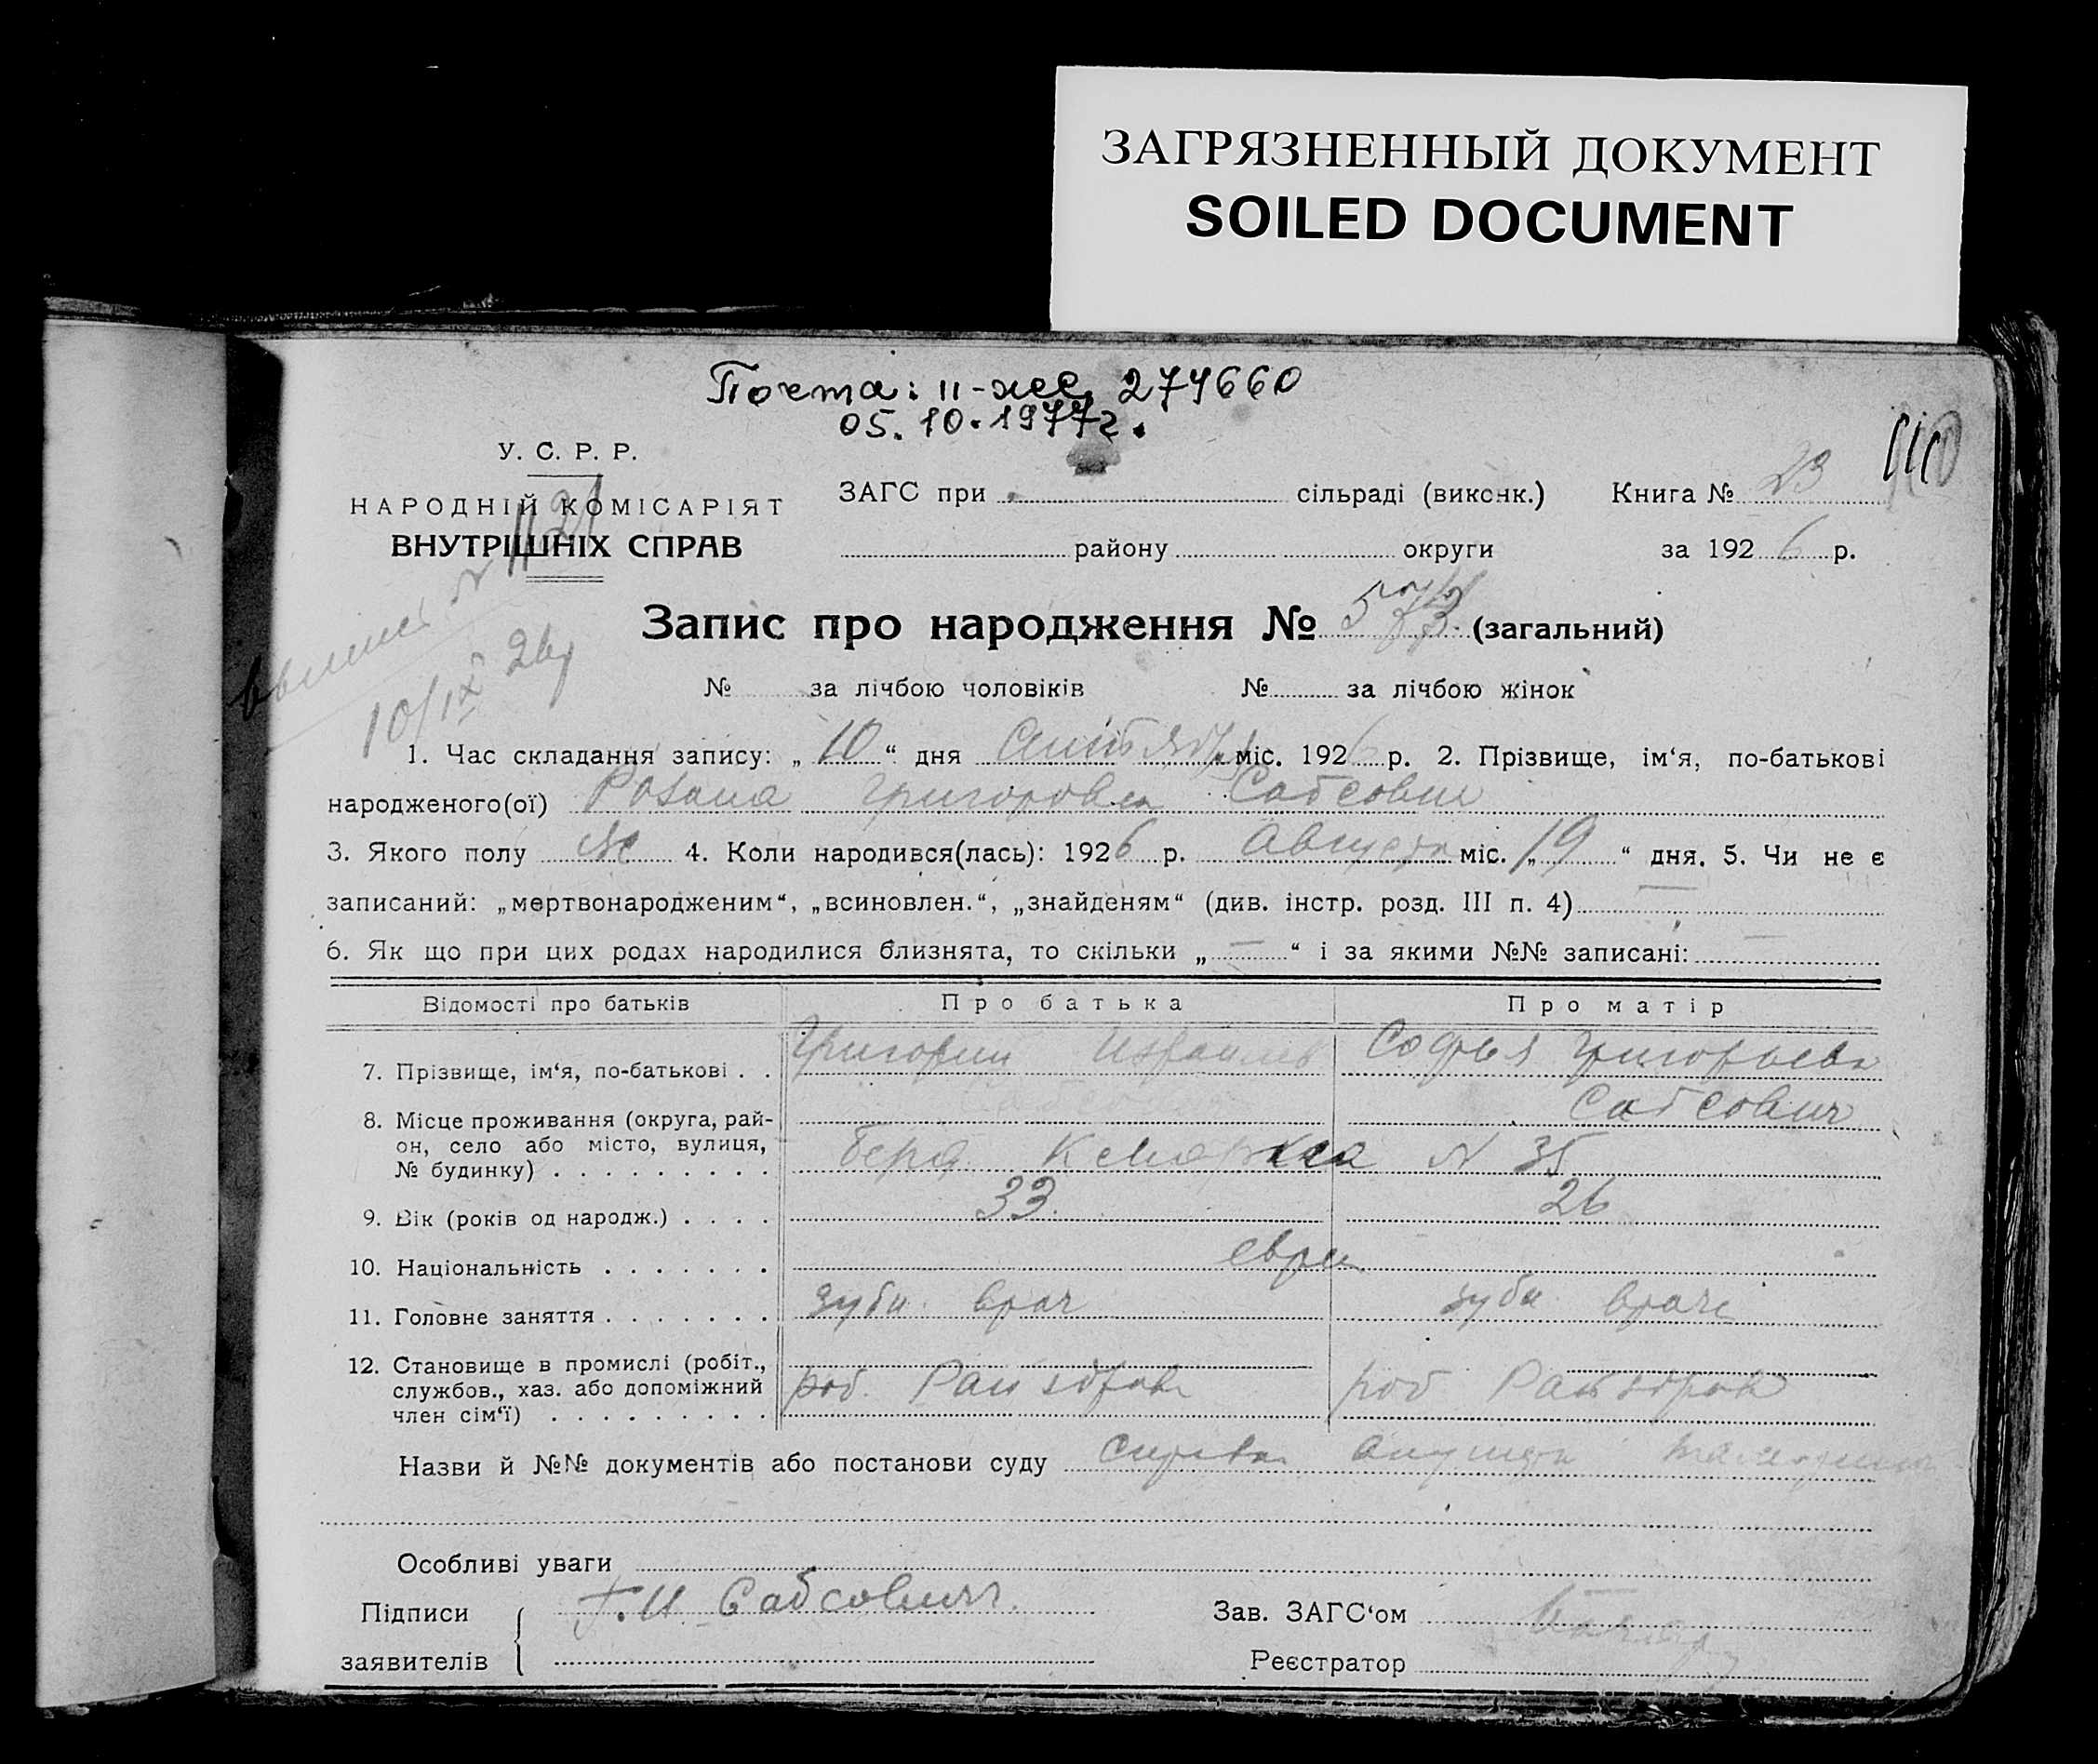 ЗАГРЯЗНЕННЫЙ ДОКУМЕНТ
SOILED DOCUMENT
Почта: II-ЖС 274660
05.10.1977г.
У. С. Р. Р.
НАРОДНІЙ КОМІСАРІЯТ
ВНУТРІШНІХ СПРАВ
ЗАГС при сільраді (виконк.) Книга № 23
району округи за 1926 р.
Запис про народження № 573 (загальний)
10/IX 26
№ за лічбою чоловіків № за лічбою жінок
1. Час складання запису: „10“ дня міс. 1926 р. 2. Прізвище, ім‘я, по-батькові
народженого(ої) Григоровна Сабсович
3. Якого полу ж 4. Коли народився(лась): 1926 р. Августа міс. „19“ дня. 5. Чи не є
записаний: „мертвонародженим“, „всиновлен.“, „знайденям“ (див. інстр. розд. III п. 4) —
6. Як що при цих родах народилися близнята, то скільки „—“ і за якими №№ записані: —
Відомості про батьків Про батька Про матір
7. Прізвище, ім‘я, по-батькові . . Григорий Израилев Софья Григорьевн
Сабсович
8. Місце проживання (округа, рай-
он, село або місто, вулиця,
№ будинку) . . . . . . . . . К Маркса N 35
9. Вік (років од народж.) . . . . 33 26
10. Національність . . . . . . . евреи
11. Головне заняття . . . . . . . зубн. врач зубн. врач
12. Становище в промислі (робіт.,
службов., хаз. або допоміжний
член сім‘ї) . . . . . . . . . роб. роб
Назви й №№ документів або постанови суду
Особливі уваги
Підписи Г. И Сабсович Зав. ЗАГС‘ом
заявителів Реєстратор